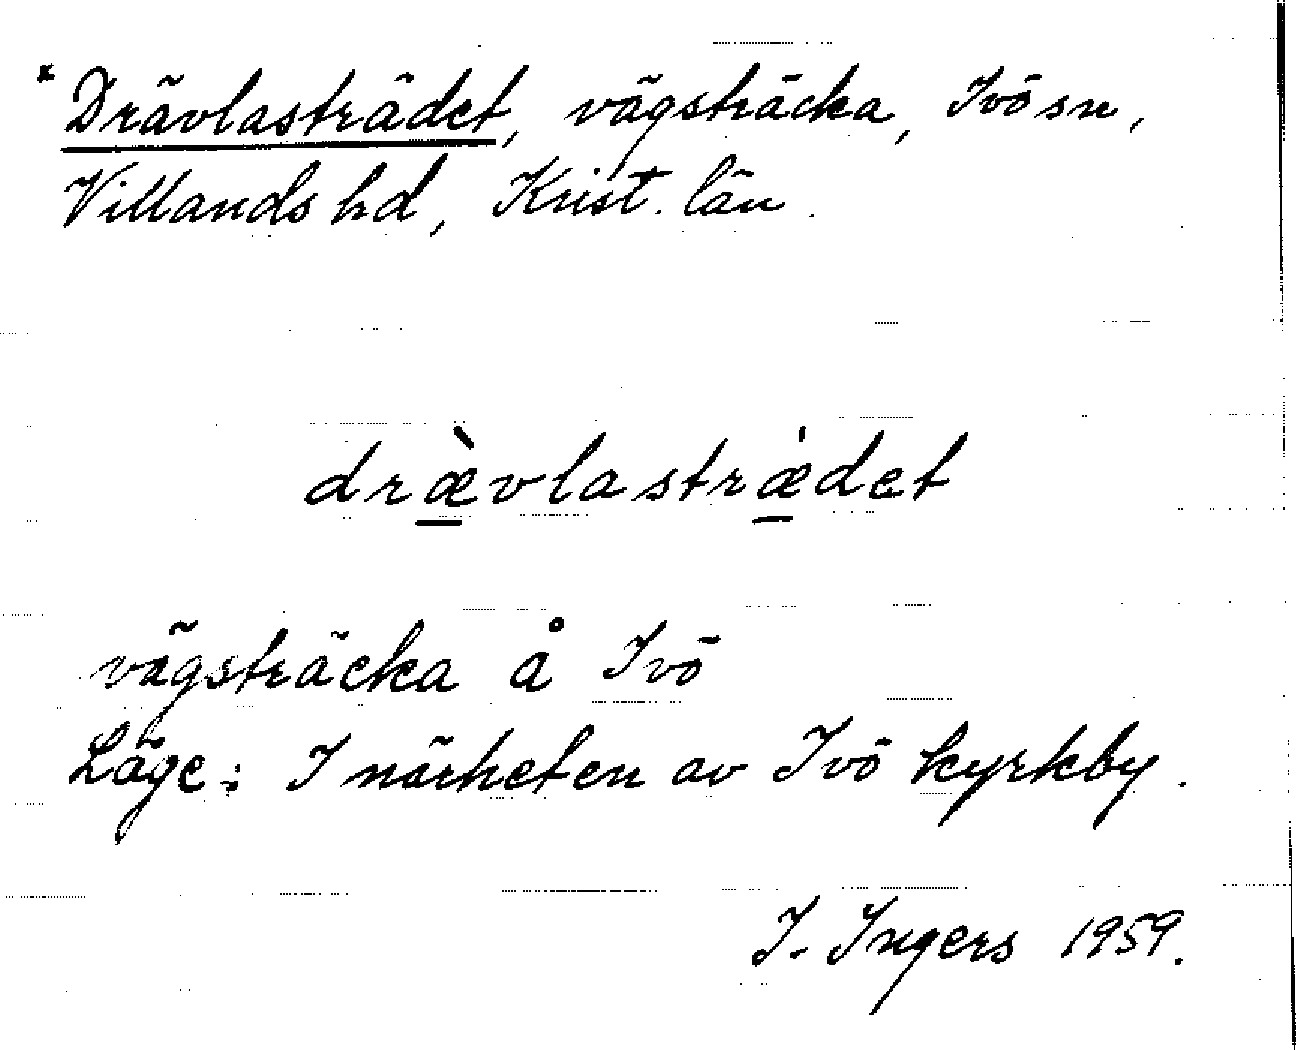 * Drävlasträdet, vägsträcka, Ivö sn,
Villands hd, Krist. län.
dræ̀vlastræ̍det
vägsträcka å Ivö
Läge: I närheten av Ivö kyrkby.
I. Ingers 1959.